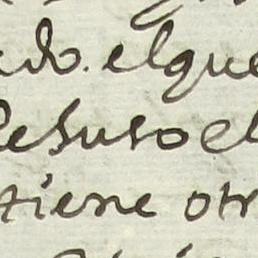 ado. elque
de suso el
tiene otr